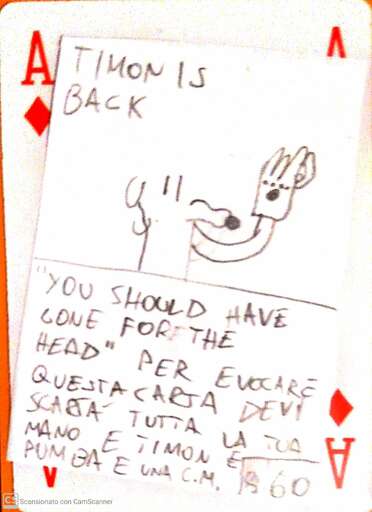 A
A
TIMON IS
BACK
"YOU SHOULD HAVE
GONE FOR THE
HEAD" PER EVOCARE
QUESTA CARTA DEVI
SCARTA' TUTTA LA TUA
MANO E TIMON E
PUMBA E UNA C.M. 60
A
CS Scansionato con CamScanner